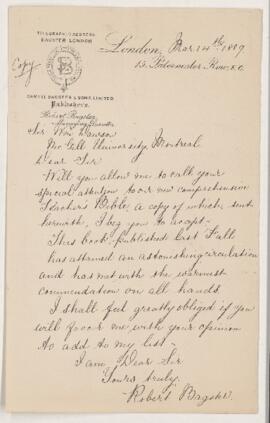 TELEGRAPHIC ADDRESS
BAGSTER LONDON
Copy
London, Mar 14th 1889
15, Paternoster Row, E.C.
SAMUEL BAGSTER & SONS, LIMITED
Publishers.
Robert Bagster,
Managing Director
Sir Wm Dawson
McGill University Montreal
Dear Sir
Will you allow me to call your
special attention to our new comprehensive
Teacher's Bible, a copy of which sent
herewith, I beg you to accept—
This book published last Fall
has attained an astonishing circulation
and has met with the warmest
commendation on all hands.
I shall feel greatly obliged if you
will favor me with your opinion
to add to my list—
I am Dear Sir
Yours truly,
Robert Bagster